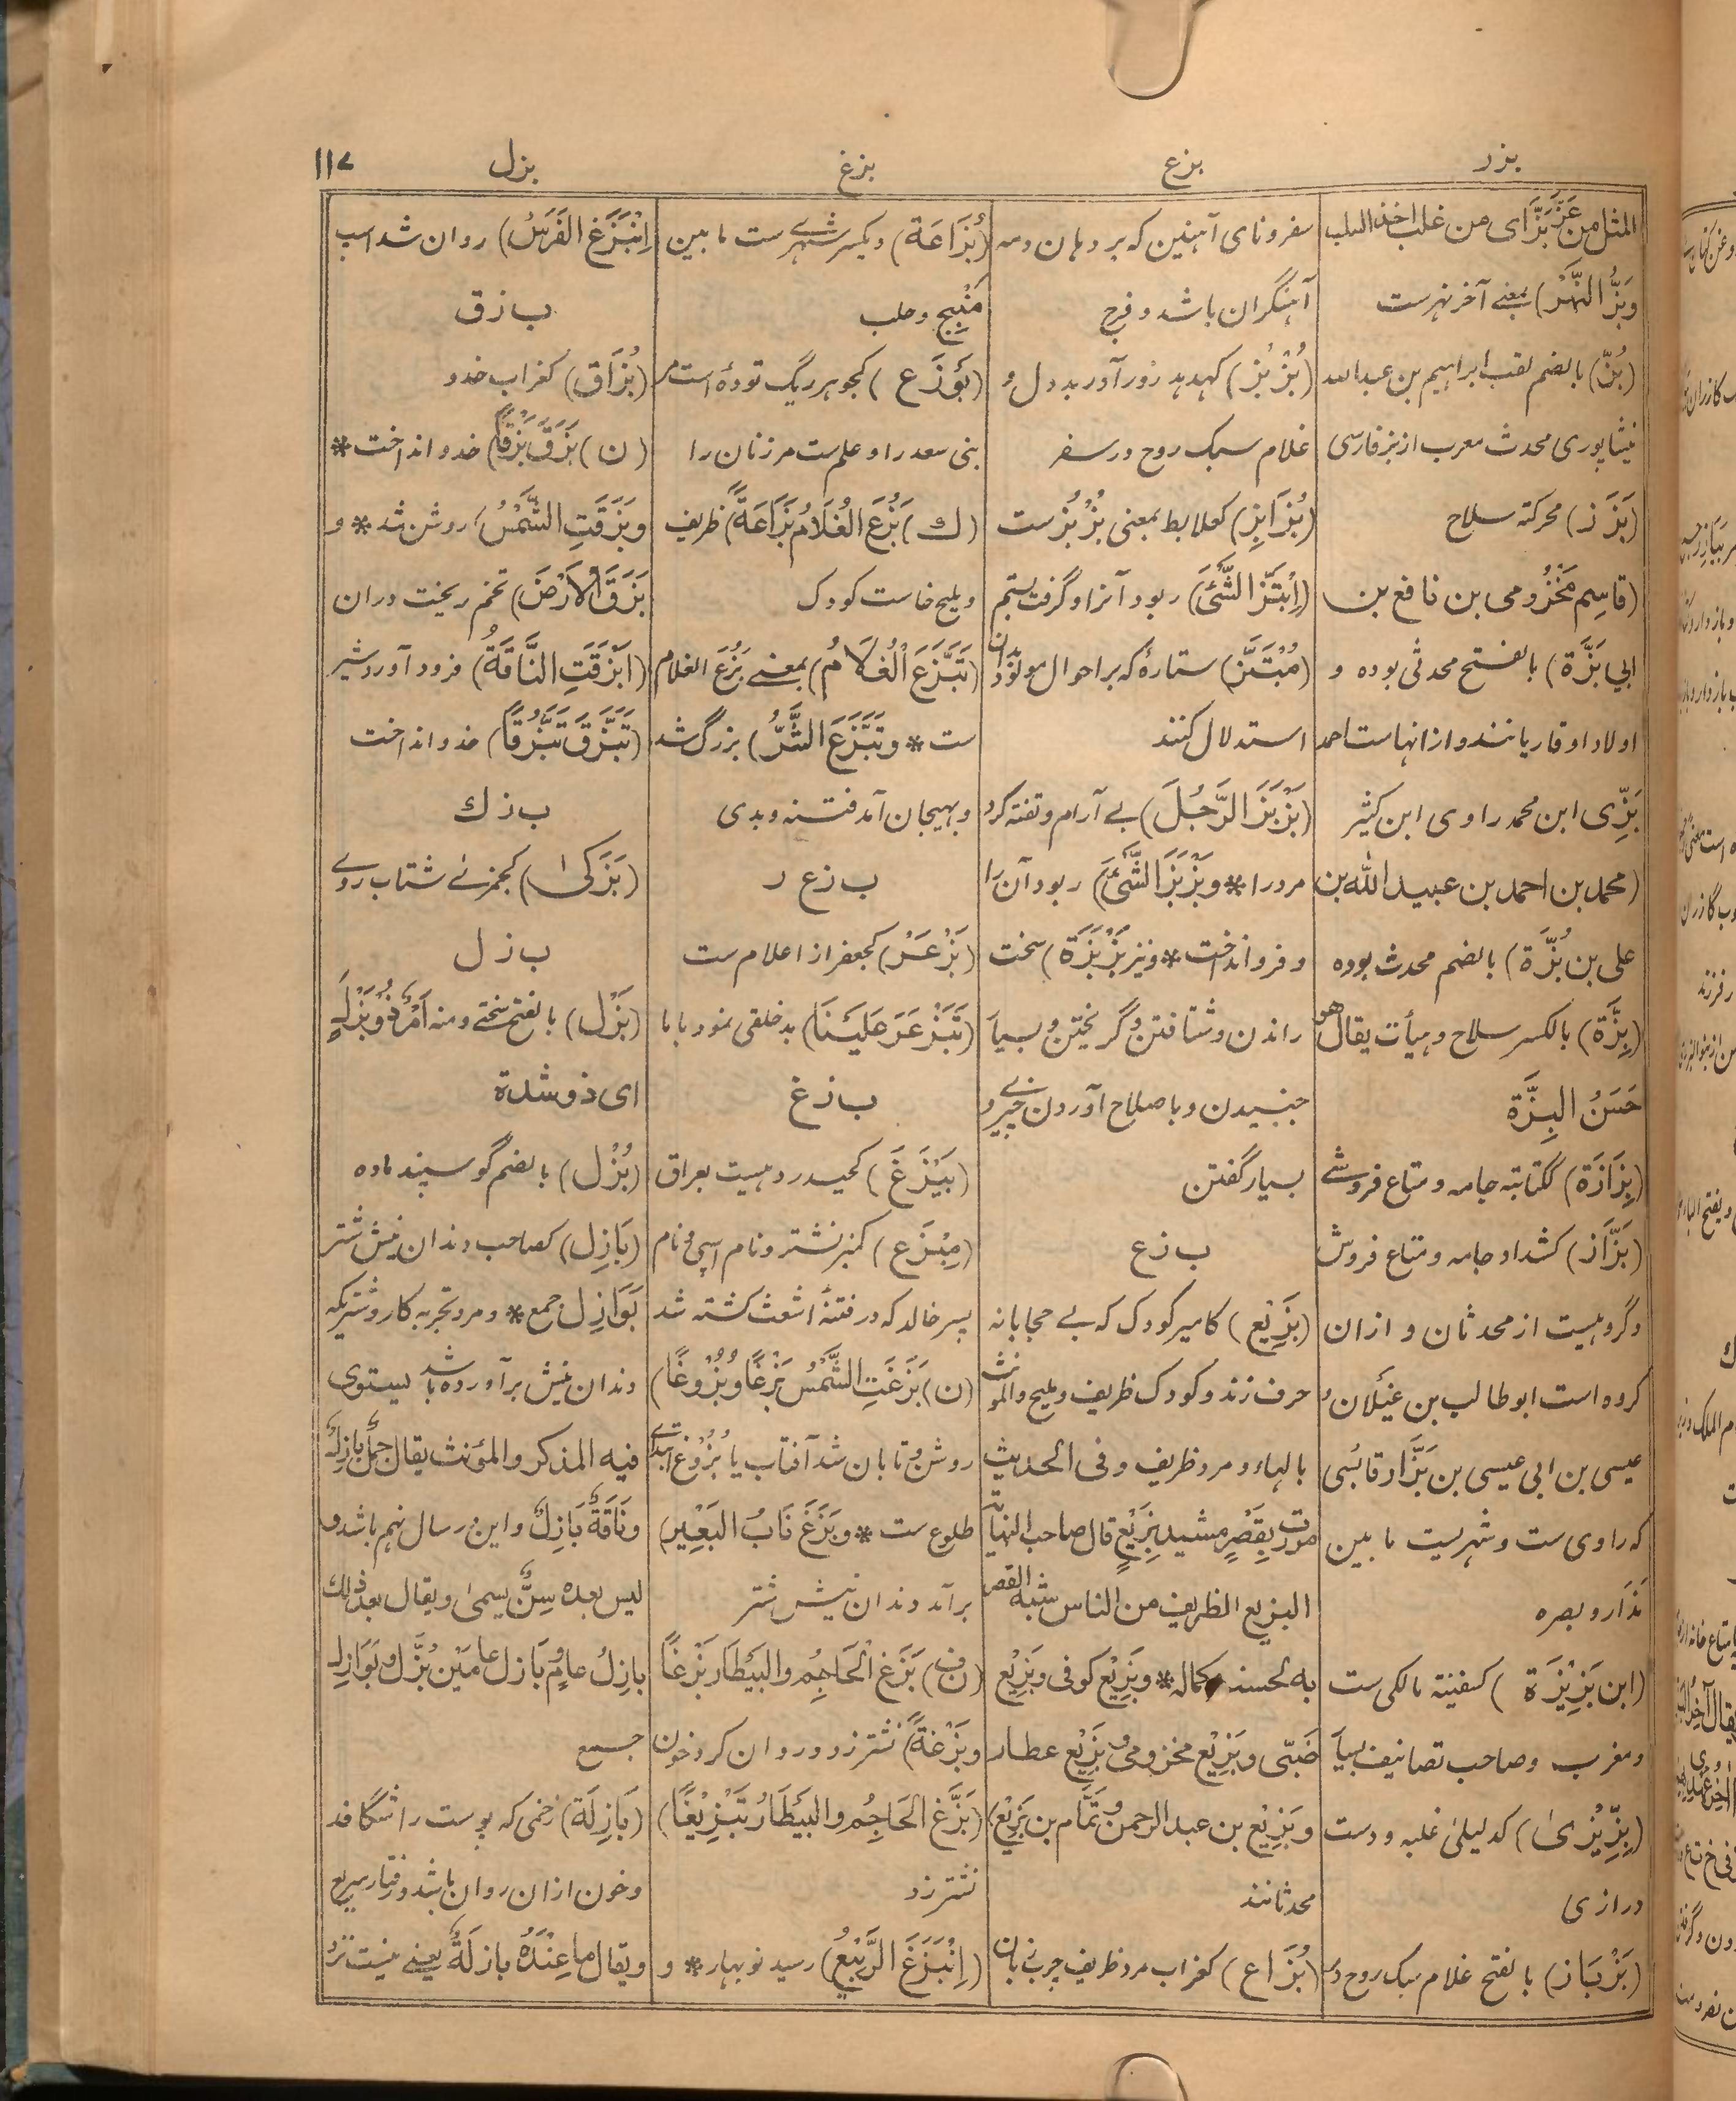 بزر
بزع
بزغ
بزل
۱۱۷
المثل من عَزَّ بَزَّ ای من غلب اخذ السلب
وبَزُّ النَّهْر) بمعنے آخر نہرست
(بُزّ) بالضم لقب ابراہیم بن عبداللہ
نیشاپوری محدث معرب از بز فارسی
(بَزَز) محرکتہ سلاح
(قاسِم مَخْزُومی بن نافع بن
ابي بَزَّة) بالفتح محدثی بوده و
اولاد او قاریانند و از انہاست احمد
بَزِّی ابن محمد راوی ابن کثیر
(محمد بن احمد بن عبید اللّٰه بن
علی بن بُزَّة) بالضم محدث بوده
(بِزَّة) بالکسر سلاح وہیأت یقال هو
حَسَنُ البِزَّة
(بِزَازَة) ککتابتہ جامہ و متاع فروشے
(بَزَّاز) کشداد جامہ و متاع فروش
وگروہیست از محدثان و ازان
گروه است ابوطالب بن غَیْلان و
عیسی بن ابی عیسی بن بَزَّاز قابُسی
که راوی ست و شهریست ما بین
مَذَار و بصره
(ابن بَزِیْزَة) کسفینتہ مالکی ست
ومغرب وصاحب تصانیف بسیار
(بِزِّیْزیٰ) کدلیلیٰ غلبہ و دست
درازی
(بَزْبَاز) بالفتح غلام سبک روح و
سفر و نای آہنین که بر دہان دمہ
آہنگران باشد و فرج
(بُزْبُز) کہدہد زورآور بددل و
غلام سبک روح در سفر
(بُزَابِز) کعلابط بمعنی بُزْبُزست
(اِبْتَزَّ الشَّیْئَ) ربود آنرا و گرفت بستم
(مُبْتَزّ) ستارهٔ که بر احوال مولود بدان
استدلال کنند
(بَزْبَزَ الرَّجُلَ) بے آرام و تفتہ کرد
مرد را * وبَزْبَزَ الشَّیْئَ) ربود آن را
و فرو انداخت * ونیز بَزْبَزَة) سخت
راندن و شتافتن و گریختن و بسیار
جنبیدن و باصلاح آوردن چیزے و
بسیار گفتن
ب ز ع
(بَزِیْع) کامیر کودک که بے محابانہ
حرف زند و کودک ظریف و ملیح والمؤنث
بالهاء و مرد ظریف وفی الحدیث
مررت بِقَصْرٍ مشید بَزِیْعٍ قال صاحب النہایة
البزیع الظریف من الناس شبه القصر
به لحسنه وکماله * وبَزِیْع کوفی وبَزِیْع
ضَبّی وبَزِیْع مخزومی وبَزِیْع عطار
وبَزِیْع بن عبد الرحمن وتَمَّام بن بَزِیْع)
محدثانند
(بُزَاع) کغراب مرد ظریف چرب زبان
(بُزَاعَة) و یکسر شہرے ست ما بین
مَنْبِج و حلب
(بَوْزَع) کجوہر ریگ تودهٔ است مر
بنی سعد را و علم ست مر زنان را
(ك) بَزُعَ الغُلَامُ بَزَاعَةً) ظریف
و ملیح خاست کودک
(تَبَزَّعَ الْغُلَامُ) بمعنے بَزُعَ الغلام
ست * وتَبَزَّعَ الشَّرُّ) بزرگ شد
و بہیجان آمد فتنہ و بدی
ب ز ع ر
(بَزْعَر) کجعفر از اعلام ست
(تَبَزْعَرَ عَلَیْنَا) بدخلقی نمود بابا
ب ز غ
(بَیْزَغ) کحیدر دہیست بعراق
(مِبْزَغ) کمنبر نشتر و نام اسپی و نام
پسر خالد که در فتنهٔ اشعث کشتہ شد
(ن) بَزَغَتِ الشَّمْسُ بَزْغًا وبُزُوغًا)
روشن و تابان شد آفتاب یا بُزُوغ ابتدای
طلوع ست * وبَزَغَ نَابُ البَعِیْرِ)
برآمد دندان نیش شتر
(ن ف) بَزَغَ الْحَاجِمُ والبَیْطَارُ بَزْغًا
وبَزْغَةً) نشتر زد و روان کرد خون
(بَزَّغَ الْحَاجِمُ والبَیْطَارُ تَبْزِیْغًا)
نشتر زد
(اِنْبَزَغَ الرَّبِیْعُ) رسید نوبہار * و
اِنْبَزَغَ الفَرَسُ) روان شد اسپ
ب ز ق
(بُزَاق) کغراب خدو
(ن) بَزَقَ بَزْقًا) خدو انداخت *
وبَزَقَتِ الشَّمْسُ) روشن شد * و
بَزَقَ الْاَرْضَ) تخم ریخت دران
(اَبْزَقَتِ النَّاقَةُ) فرود آورد شیر
(تَبَزَّقَ تَبَزُّقًا) خدو انداخت
ب ز ك
(بَزَکیٰ) کجمزے شتاب روے
ب ز ل
(بَزْل) بالفتح سختے ومنه اَمْرٌ ذُو بَزْلٍ
ای ذو شدة
(بُزْل) بالضم گوسپند ماده
(بَازِل) کصاحب دندان نیش شتر
بَوَازِل جمع * و مرد تجربہ کار و شتریکہ
دندان نیش برآورده باشد یستوی
فیه المذکر والمؤنث یقال جملٌ بازلٌ
ونَاقَةٌ بَازِلٌ واین در سال نہم باشد و
لیس بعدہ سِنٌّ یسمیٰ ویقال بعد ذلك
بازِلُ عامٍ وبَازل عامَیْن بُزَّل وبَوَازِل
جمع
(بَازِلَة) زخمی که پوست را شگافد
و خون ازان روان باشد و رفتار سریع
ویقال ما عِنْدَهٗ بازلَةٌ یعنے نیست نزد